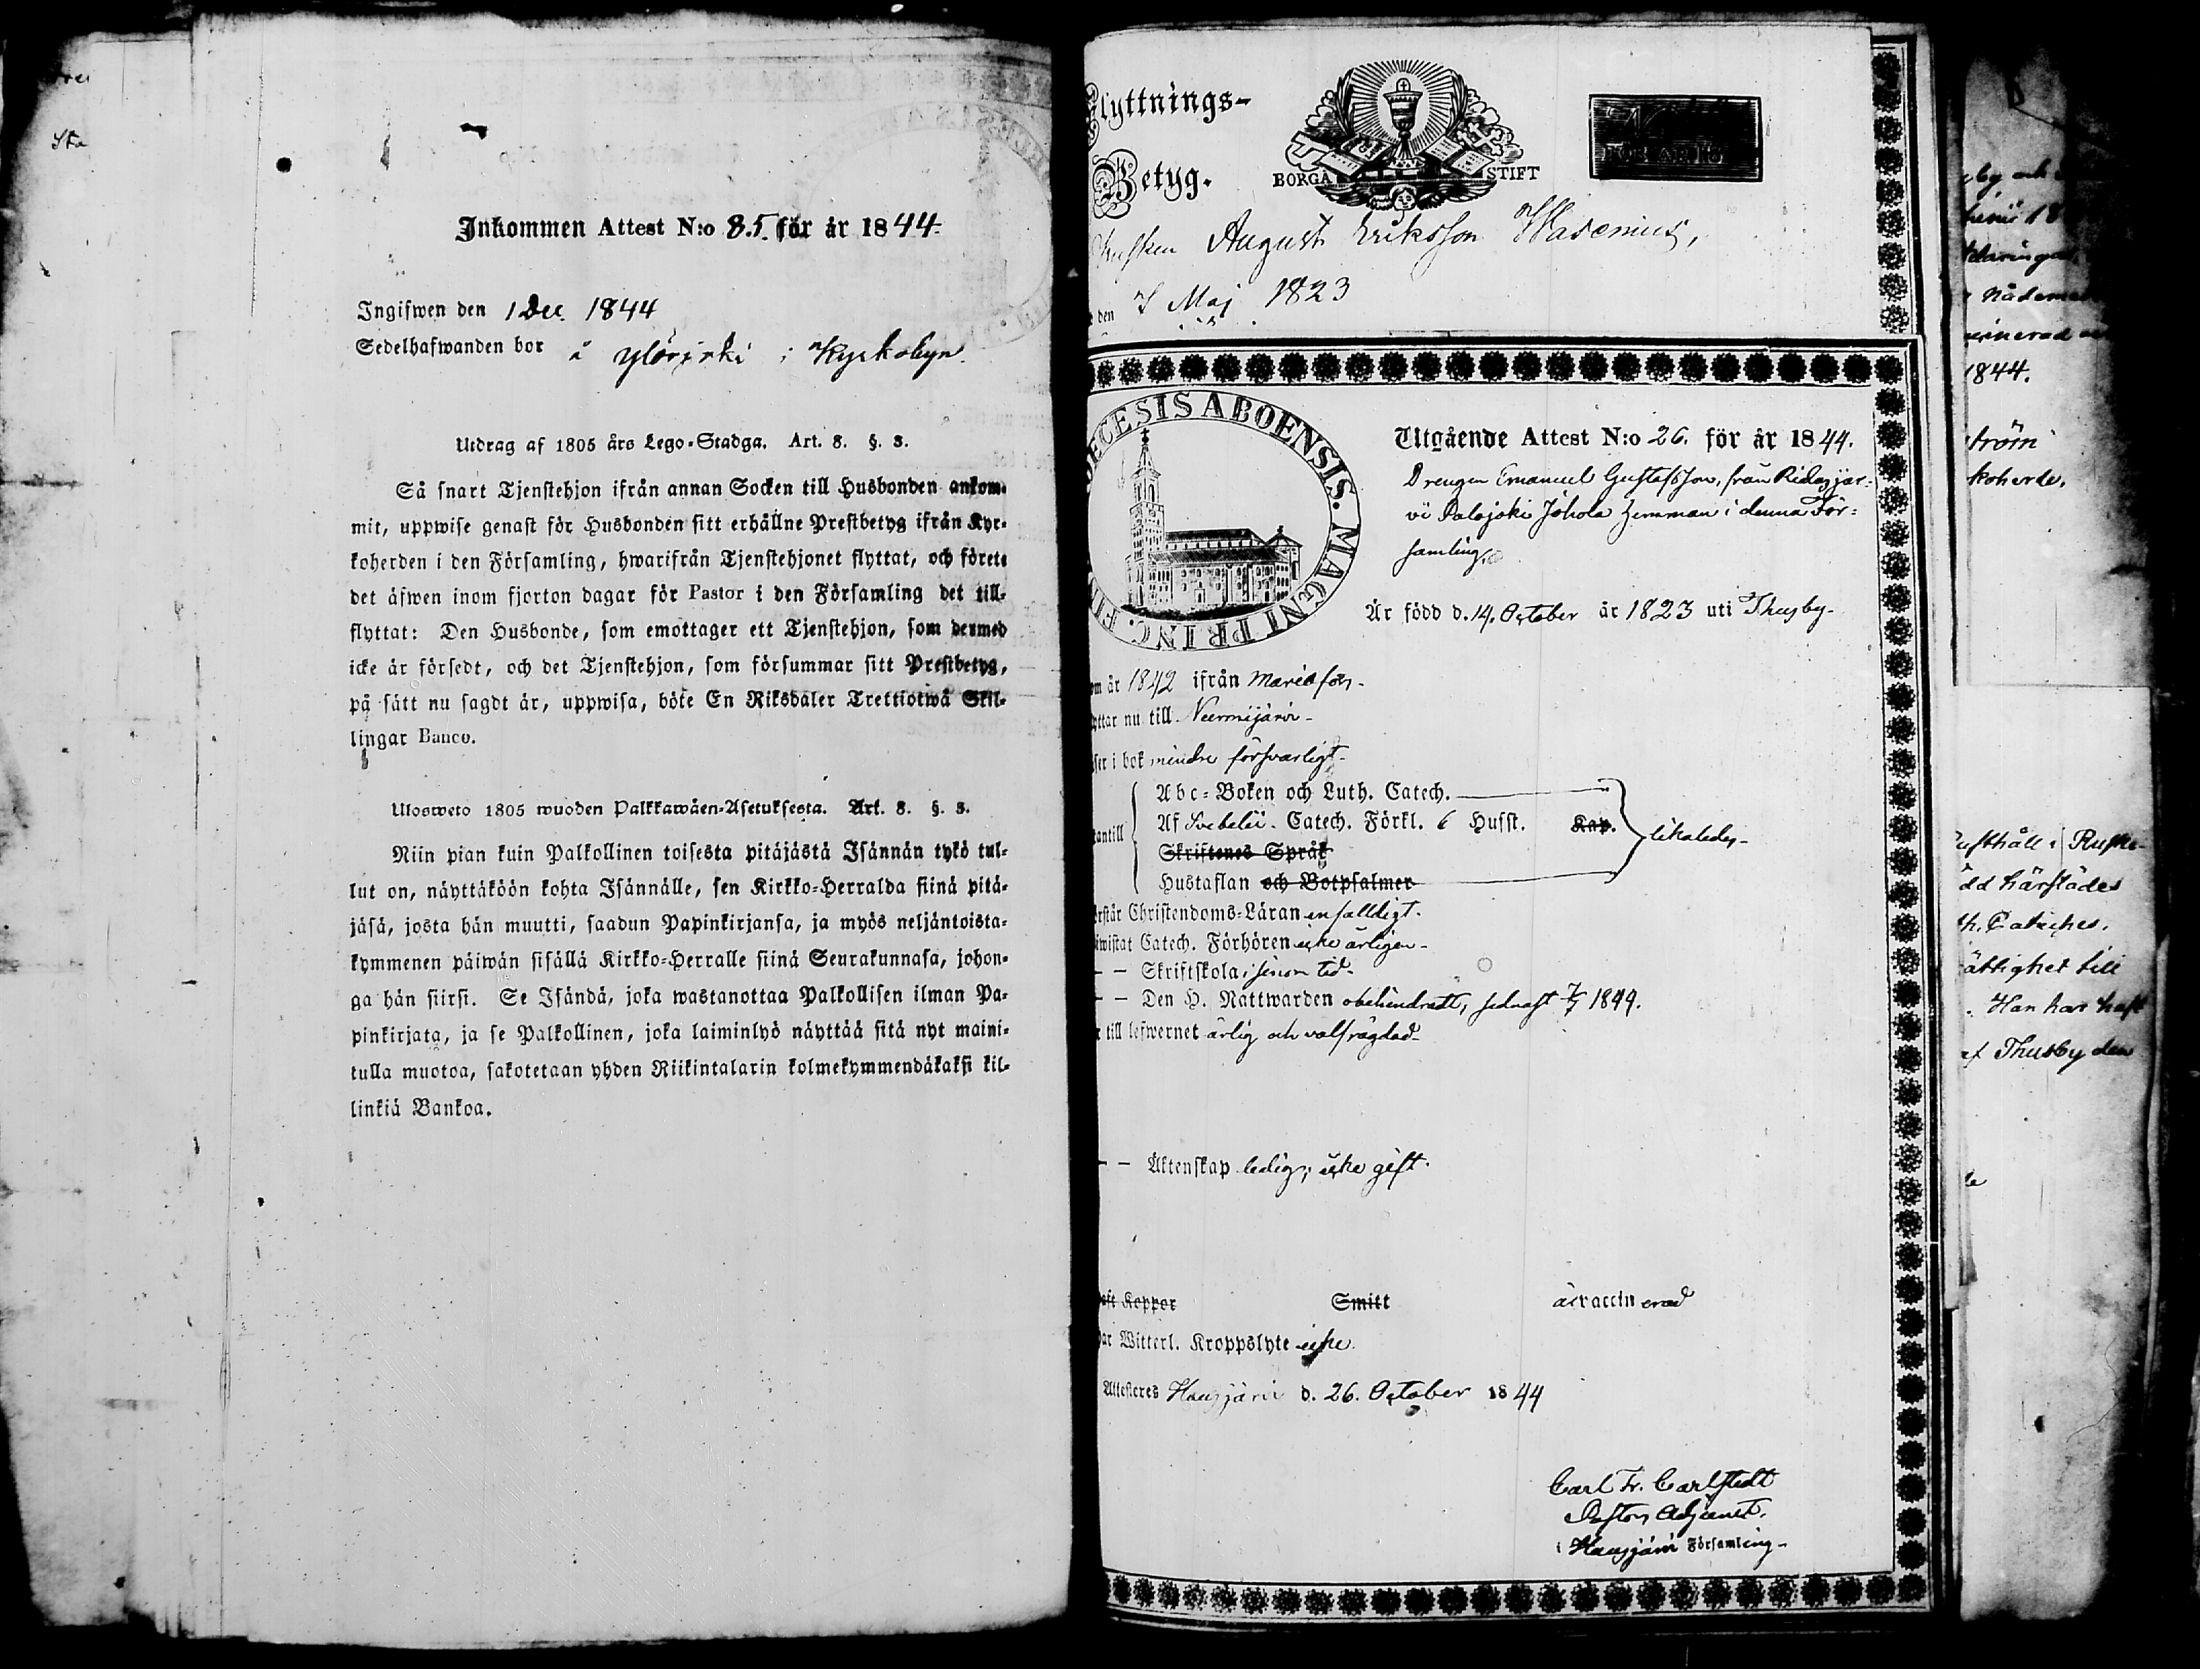 Inkommen Attest N:o 85. för år 1844.
Ingifwen den 1 Dec. 1844
Sedelhafwanden bor å Ylöjoki i Kyrkobyn.
Utdrag af 1805 års Lego-Stadga. Art. 8. §. 3.
Så snart Tjenstehjon ifrån annan Socken till Husbonden ankom-
mit, uppwise genast för Husbonden sitt erhållne Prestbetyg ifrån Kyr-
koherden i den Församling, hwarifrån Tjenstehjonet flyttat, och förete
det äfwen inom fjorton dagar för Pastor i den Församling det till-
flyttat: Den Husbonde, som emottager ett Tjenstehjon, som dermed
icke är försedt, och det Tjenstehjon, som försummar sitt Prestbetyg,
på sätt nu sagdt är, uppwisa, böte En Riksdaler Trettiotwå Skil-
lingar Banco.
Ulosweto 1805 wuoden Palkkawäen-Asetuksesta. Art. 8. §. 3.
Niin pian kuin Palkollinen toisesta pitäjästä Isännän tykö tul-
lut on, näyttäköön kohta Isännälle, sen Kirkko-Herralda siinä pitä-
jäsä, josta hän muutti, saadun Papinkirjansa, ja myös neljäntoista-
kymmenen päiwän sisällä Kirkko-Herralle siinä Seurakunnasa, johon-
ga hän siirsi. Se Isändä, joka wastanottaa Palkollisen ilman Pa-
pinkirjata, ja se Palkollinen, joka laiminlyö näyttää sitä nyt maini-
tulla muotoa, sakotetaan yhden Riikintalarin kolmekymmendäkaksi kil-
linkiä Bankoa.
Flyttnings-
Betyg.
BORGÅ STIFT
August Eriksson Wasenius,
den 7 Maj 1823
DIOECESIS ABOENSIS. MAGNI PRINC. FIN
Utgående Attest N:o 26. för år 1844.
Drengen Emanuel Gustafsson, från Ridasjär-
vi Palojoki Jöhola hemman i denna För-
samling.
Är född d. 14. October år 1823 uti Thusby.
om år 1842 ifrån Mariæ förs.
yttar nu till Nurmijärvi
ser i bok mindre försvarligt
Abc-Boken och Luth. Catech.
antill Af Svebelii. Catech. Förkl. 6 Husst. Kap. likaledes
Skriftenes Språk
Hustaflan och Botpsalmer
rstår Christendoms-Läran enfalldigt.
wistat Catech. Förhören icke årligen
- - Skriftskola i sinom tid
- - Den H. Nattwarden obehindradt, sednast 7/7 1844.
till lefwernet ärlig och valfrägdad
- - Äktenskap ledig; icke gift.
aft Koppor Smitt är vaccinerad
ar Witterl. Kroppslyte icke
Attesteres Hausjärvi d. 26. October 1844
Carl Fr. Carlstedt
Pastors Adjunct.
i Hausjärvi Församling
1844.
ström
koherde.
Rusthåll i Ruske-
ödd härstädes
th. Catuches.
ättighet till
. Han har haft
af Thusby den